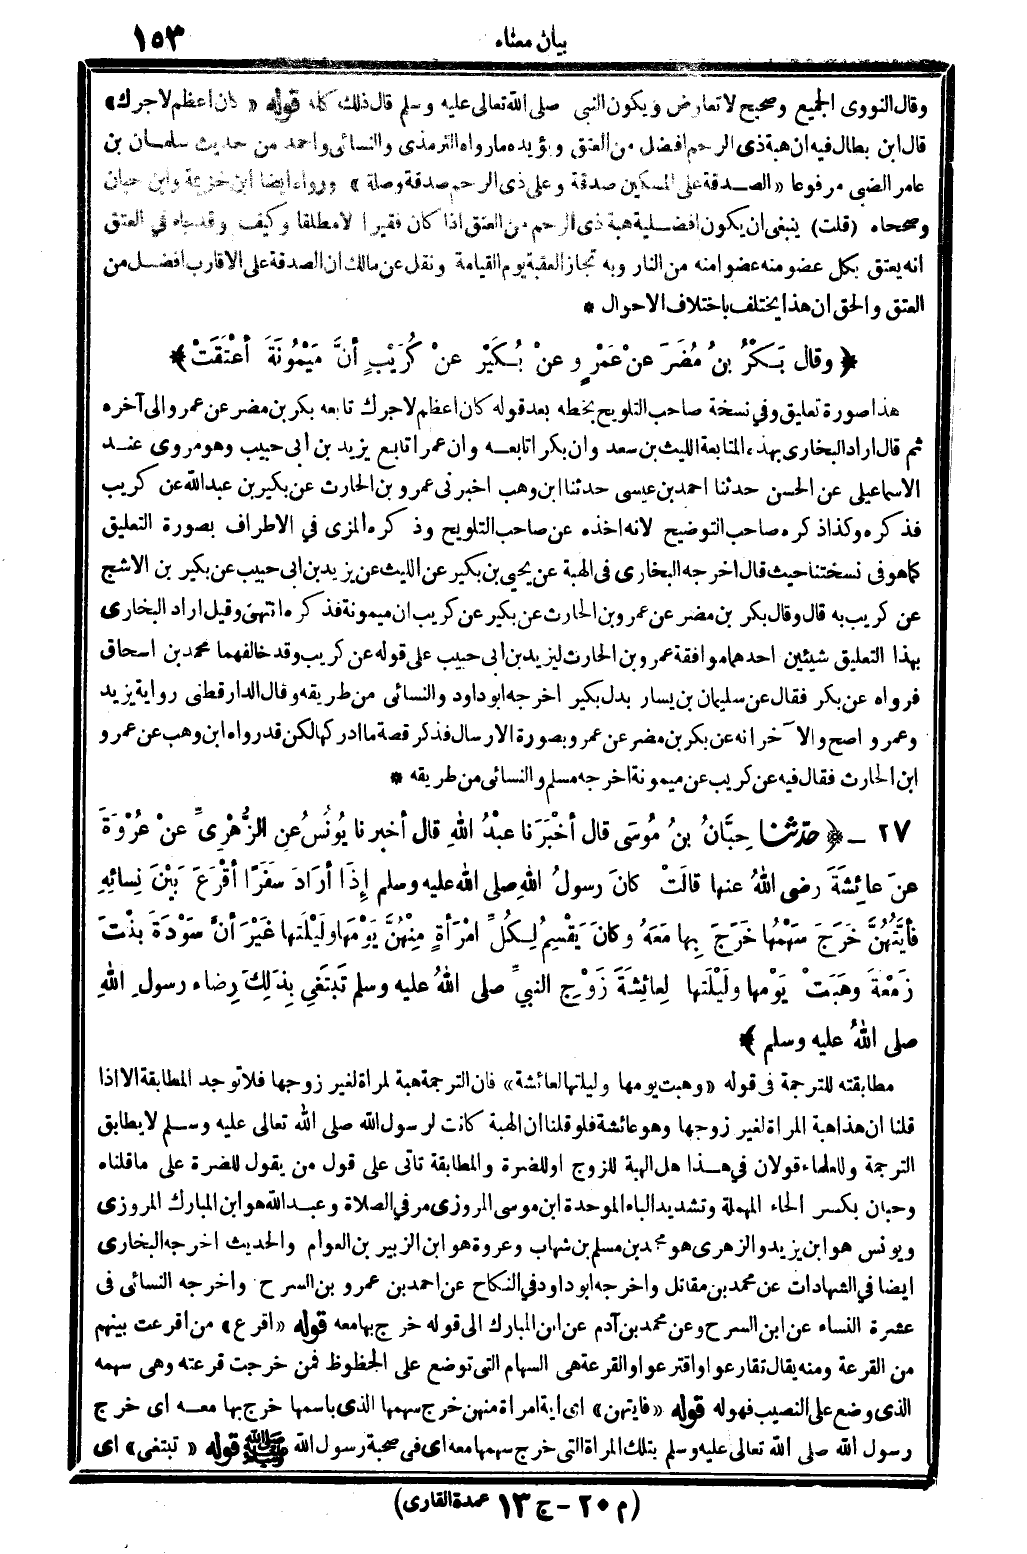 بيان معناه ١٥٣
وقال النووى الجميع وصحيح لاتعارض ويكون النبى صلى الله تعالى عليه وسلم قال ذلك كله قوله « كان اعظم لاجرك»
قال ابن بطال فيه ان هبة ذى الرحم افضل من العتق ويؤيده مارواه الترمذى والنسائى واحمد من حديث سلمان بن
عامر الضبى مرفوعا «الصدقة على المسكين صدقة وعلى ذى الرحم صدقة وصلة» ورواه ايضا ابن خزيمة وابن حبان
وصححاه (قلت) ينبغى ان يكون افضلية هبة ذى الرحم من العتق اذا كان فقيرا لا مطلقا وكيف وقد جاء في العتق
انه يعتق بكل عضو منه عضوا منه من النار وبه تجاز العقبة يوم القيامة ونقل عن مالك ان الصدقة على الاقارب افضل من
العتق والحق ان هذا يختلف باختلاف الاحوال *
﴿ وقال بَكْرُ بنُ مُضَرَ عنْ عَمْرٍو عنْ بُكَيْرٍ عنْ كُرَيْبٍ أنَّ مَيْمُونَةَ أعْتَقَتْ ﴾
هذا صورة تعليق وفي نسخة صاحب التلويح بخطه بعد قوله كان اعظم لاجرك تابعه بكر بن مضر عن عمرو الى آخره
ثم قال اراد البخارى بهذه المتابعة الليث بن سعد وان بكرا تابعه وان عمرا تابع يزيد بن أبى حبيب وهو مروى عند
الاسماعيلى عن الحسن حدثنا احمد بن عيسى حدثنا ابن وهب اخبرنى عمرو بن الحارث عن بكير بن عبدالله عن كريب
فذكره وكذا ذكره صاحب التوضيح لانه اخذه عن صاحب التلويح وذكره المزى في الاطراف بصورة التعليق
كما هو فى نسختنا حيث قال اخرجه البخارى فى الهبة عن يحيى بن بكير عن الليث عن يزيد بن ابى حبيب عن بكير بن الاشج
عن كريب به قال وقال بكر بن مضر عن عمرو بن الحارث عن بكير عن كريب ان ميمونة فذكره انتهى وقيل اراد البخارى
بهذا التعليق شيئين احدهما موافقة عمرو بن الحارث ليزيد بن ابى حبيب على قوله عن كريب وقد خالفهما محمد بن اسحاق
فرواه عن بكر فقال عن سليمان بن يسار بدل بكير اخرجه ابو داود والنسائى من طريقه وقال الدار قطنى رواية يزيد
وعمرو اصح والآخر انه عن بكر بن مضر عن عمرو بصورة الارسال فذكر قصة ما ادركها لكن قد رواه ابن وهب عن عمرو
ابن الحارث فقال فيه عن كريب عن ميمونة اخرجه مسلم والنسائى من طريقه *
٢٧ ـ ﴿ حدّثنا حِبَّانُ بنُ مُوسَى قال أخْبَرَنا عبْدُ اللهِ قال أخبرنا يُونُسُ عنِ الزُّهْرِىِّ عنْ عُرْوَةَ
عنْ عائِشَةَ رضى اللهُ عنها قالَتْ كانَ رسولُ اللهِ صلى الله عليه وسلم إذَا أرَادَ سَفَرًا أقْرَعَ بَيْنَ نِسائِهِ
فأيَّتُهُنَّ خَرَجَ سَهْمُها خَرَجَ بِها مَعَهُ وكانَ يَقْسِمُ لِكُلِّ امْرَأةٍ مِنْهُنَّ يَوْمَها ولَيْلَتَها غَيْرَ أنَّ سَوْدَةَ بنْتَ
زَمْعَةَ وهَبَتْ يَوْمَها ولَيْلَتَها لِعائِشَةَ زَوْجِ النبيِّ صلى اللهُ عليه وسلم تَبتَغي بِذَلِكَ رِضاء رسولِ اللهِ
صلى اللهُ عليه وسلم ﴾
مطابقته للترجمة فى قوله «وهبت يومها وليلتها لعائشة» فان الترجمة هبة لمرأة لغير زوجها فلا توجد المطابقة الا اذا
قلنا ان هذا هبة المرأة لغير زوجها وهو عائشة فلو قلنا ان الهبة كانت لرسول الله صلى الله تعالى عليه وسلم لايطابق
الترجمة وللعلماء قولان في هذا هل الهبة للزوج او للضرة والمطابقة تاتى على قول من يقول للضرة على ماقلناه
وحبان بكسر الحاء المهملة وتشديد الباء الموحدة ابن موسى المروزى مر في الصلاة وعبدالله هو ابن المبارك المروزى
ويونس هو ابن يزيد والزهرى هو محمد بن مسلم بن شهاب وعروة هو ابن الزبير بن العوام والحديث اخرجه البخارى
ايضا في الشهادات عن محمد بن مقاتل واخرجه ابو داود في النكاح عن احمد بن عمرو بن السرح واخرجه النسائى فى
عشرة النساء عن ابن السرح وعن محمد بن آدم عن ابن المبارك الى قوله خرج بها معه قوله «اقرع» من اقرعت بينهم
من القرعة ومنه يقال تقارعوا واقترعوا والقرعة هى السهام التى توضع على الحظوظ فمن خرجت قرعته وهى سهمه
الذى وضع على النصيب فهو له قوله «فايتهن» اى اية امرأة منهن خرج سهمها الذى باسمها خرج بها معه اى خرج
رسول الله صلى الله تعالى عليه وسلم بتلك المرأة التى خرج سهمها معه اى فى صحبة رسول الله ﷺ قوله « تبتغى» اى
(م ٢٠ - ج ١٣ عمدة القارى)